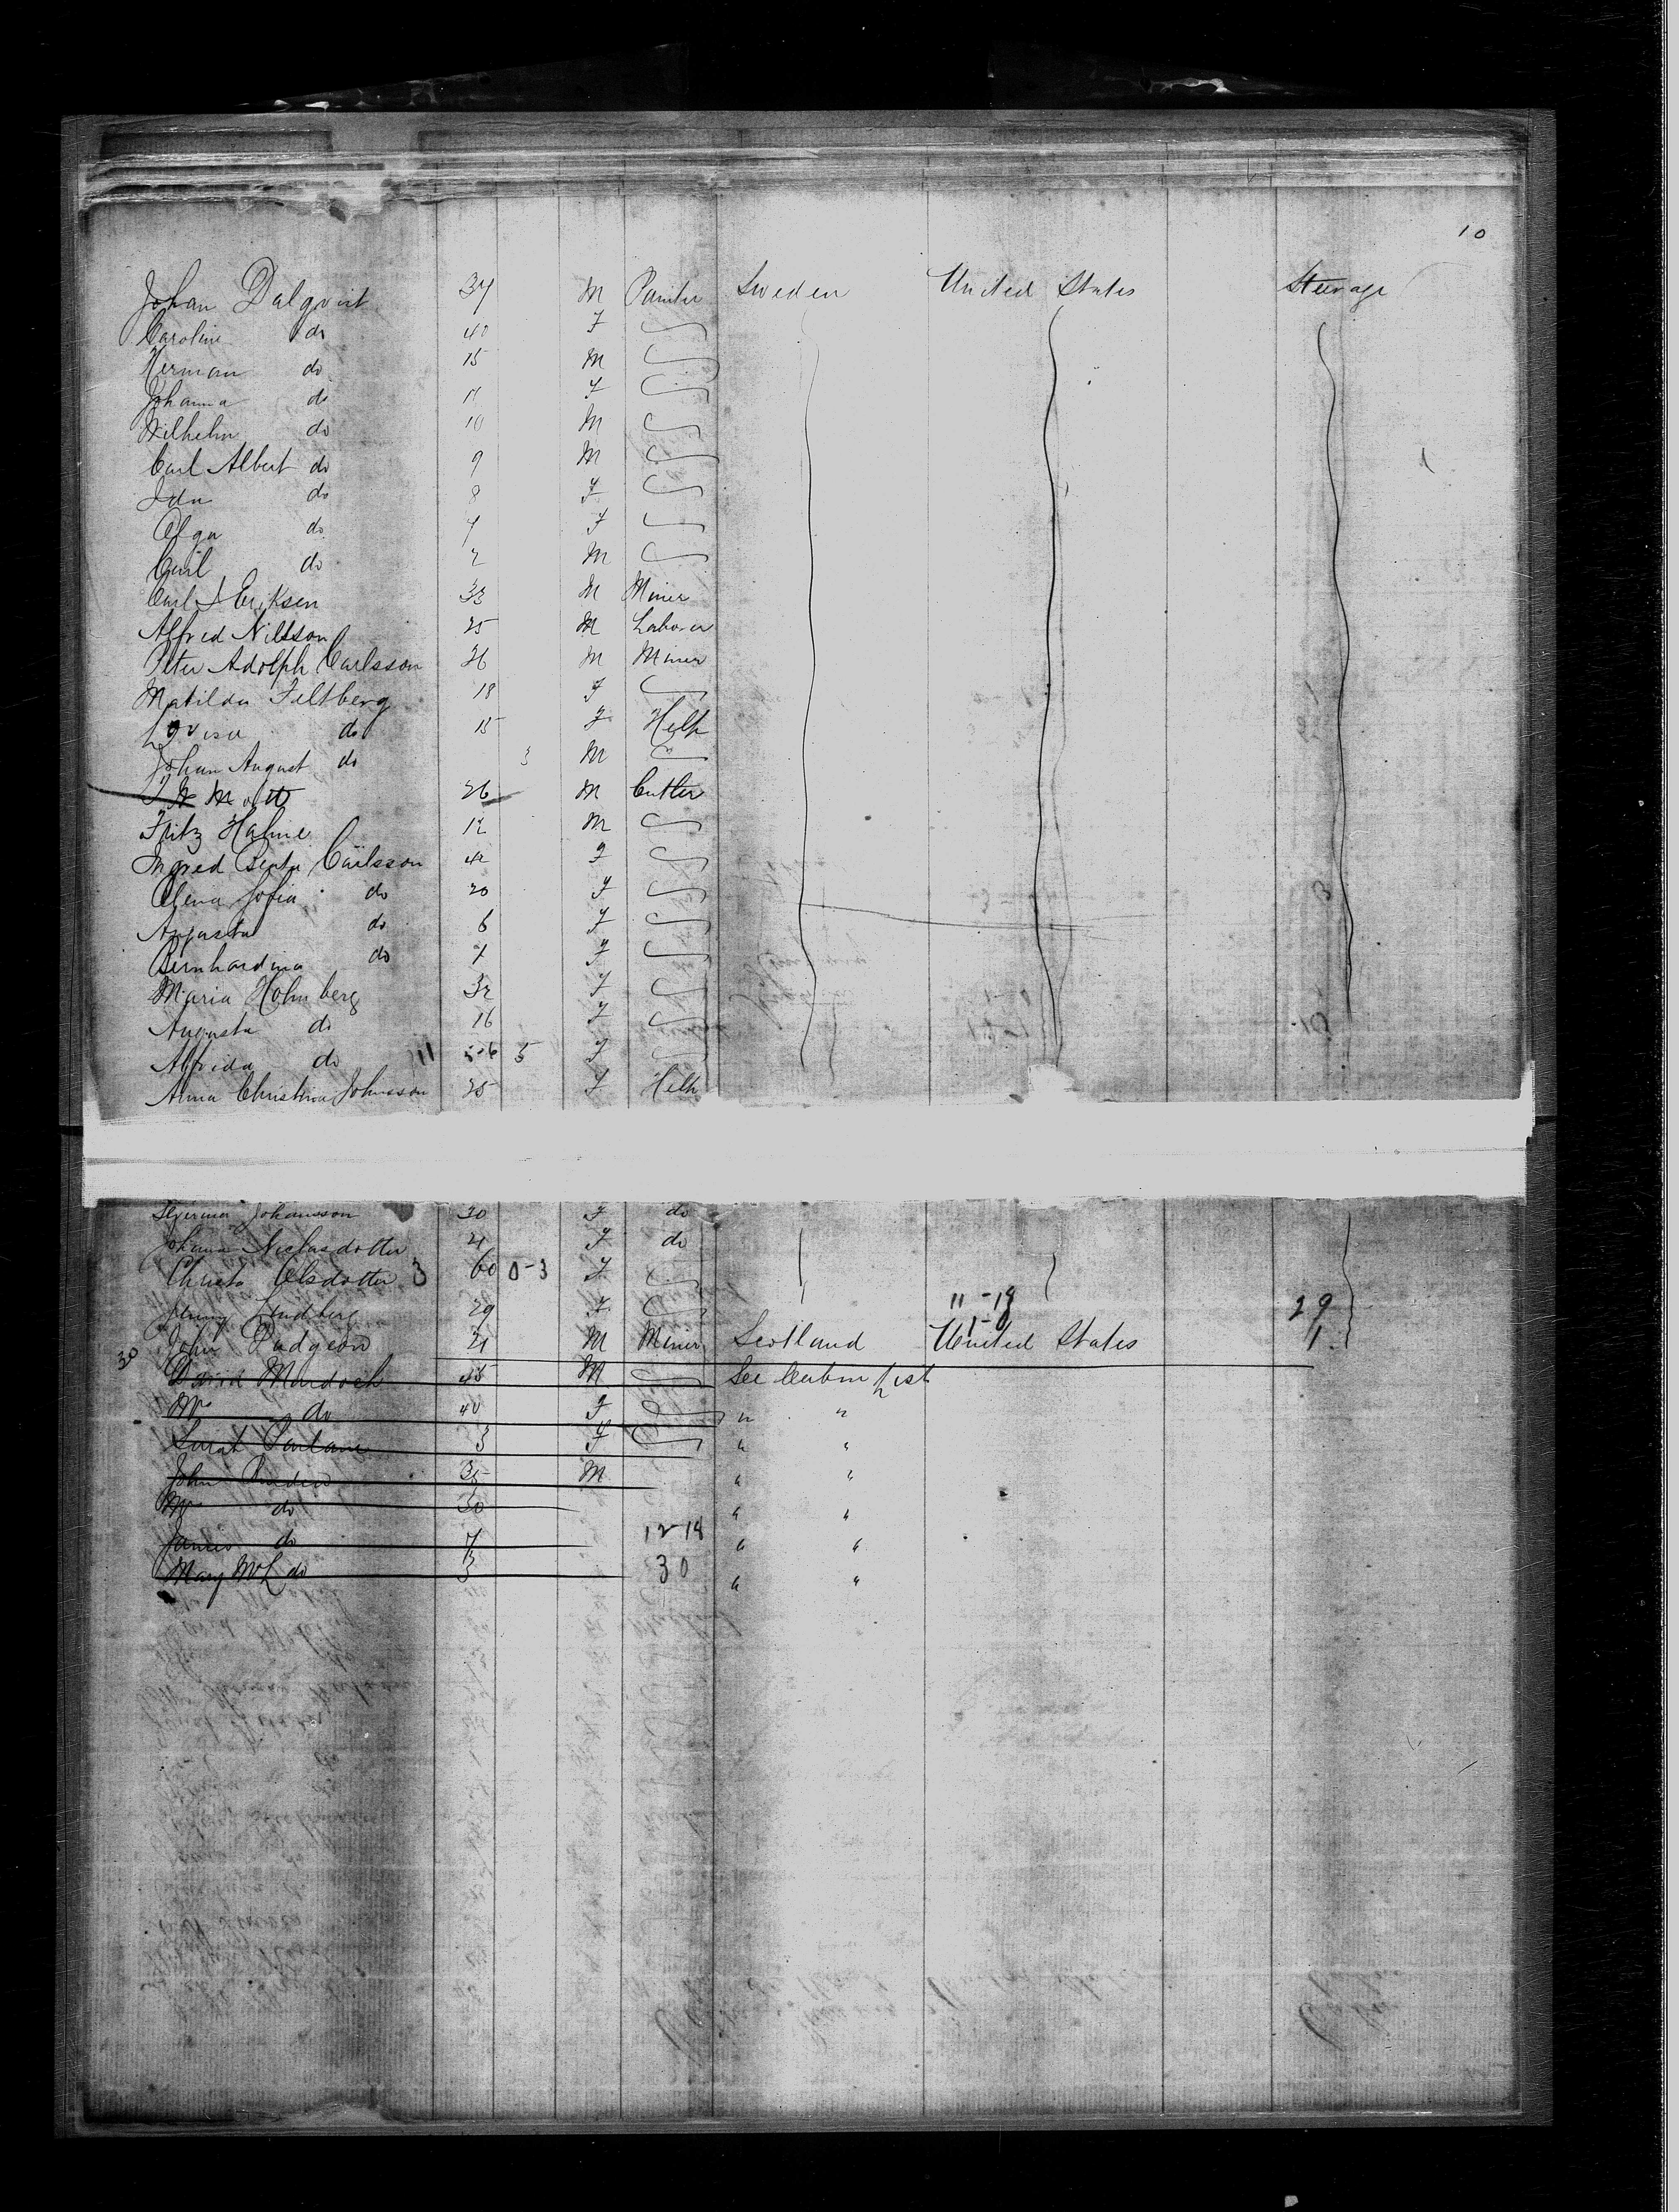 10
Johan Dalqvist 37 M Painter Sweden United States Steerage
Caroline do 40 F
Herman do 15 M
Johanna do 11 F
Wilhelm do 10 M
Carl Albert do 9 M
Ida do 8 F
Olga do 7 F
Emil do 2 M
Carl J Eriksen 33 M Miner
Alfred Nilsson 25 M Laborer
Peter Adolph Carlsson 26 M Miner
Matilda Feltberg 18 F
Lovisa do 15 F Help
Johan August do 3 M
Mott 26 M Cutler
Fritz Halme 12 M
Ingred Berta Carlsson 42 F
Elena Sofia do 20 F
Augusta do 6 F
Bernhardina do 7 F
Maria Holmberg 32 F
Augusta do 16 F
Alfrida do 11 5 F
Anna Christina Johnsson 25 F Help
Severina Johansson 30 F do
Johanna Niclasdotter 21 F do
Christa Olsdotter 3 60 0-3 F
Jenny Lindberg 29 F 11-18 29
John Pudgeon 21 M Miner Scotland United States 1
30 David Murdoch 45 M See Cabin List
Mrs do 40 F " "
Sarat Parlane 3 F " "
John 35 M " "
Mrs do 30 " "
James do 7 12-18 " "
Mary McL do 3 30 " "